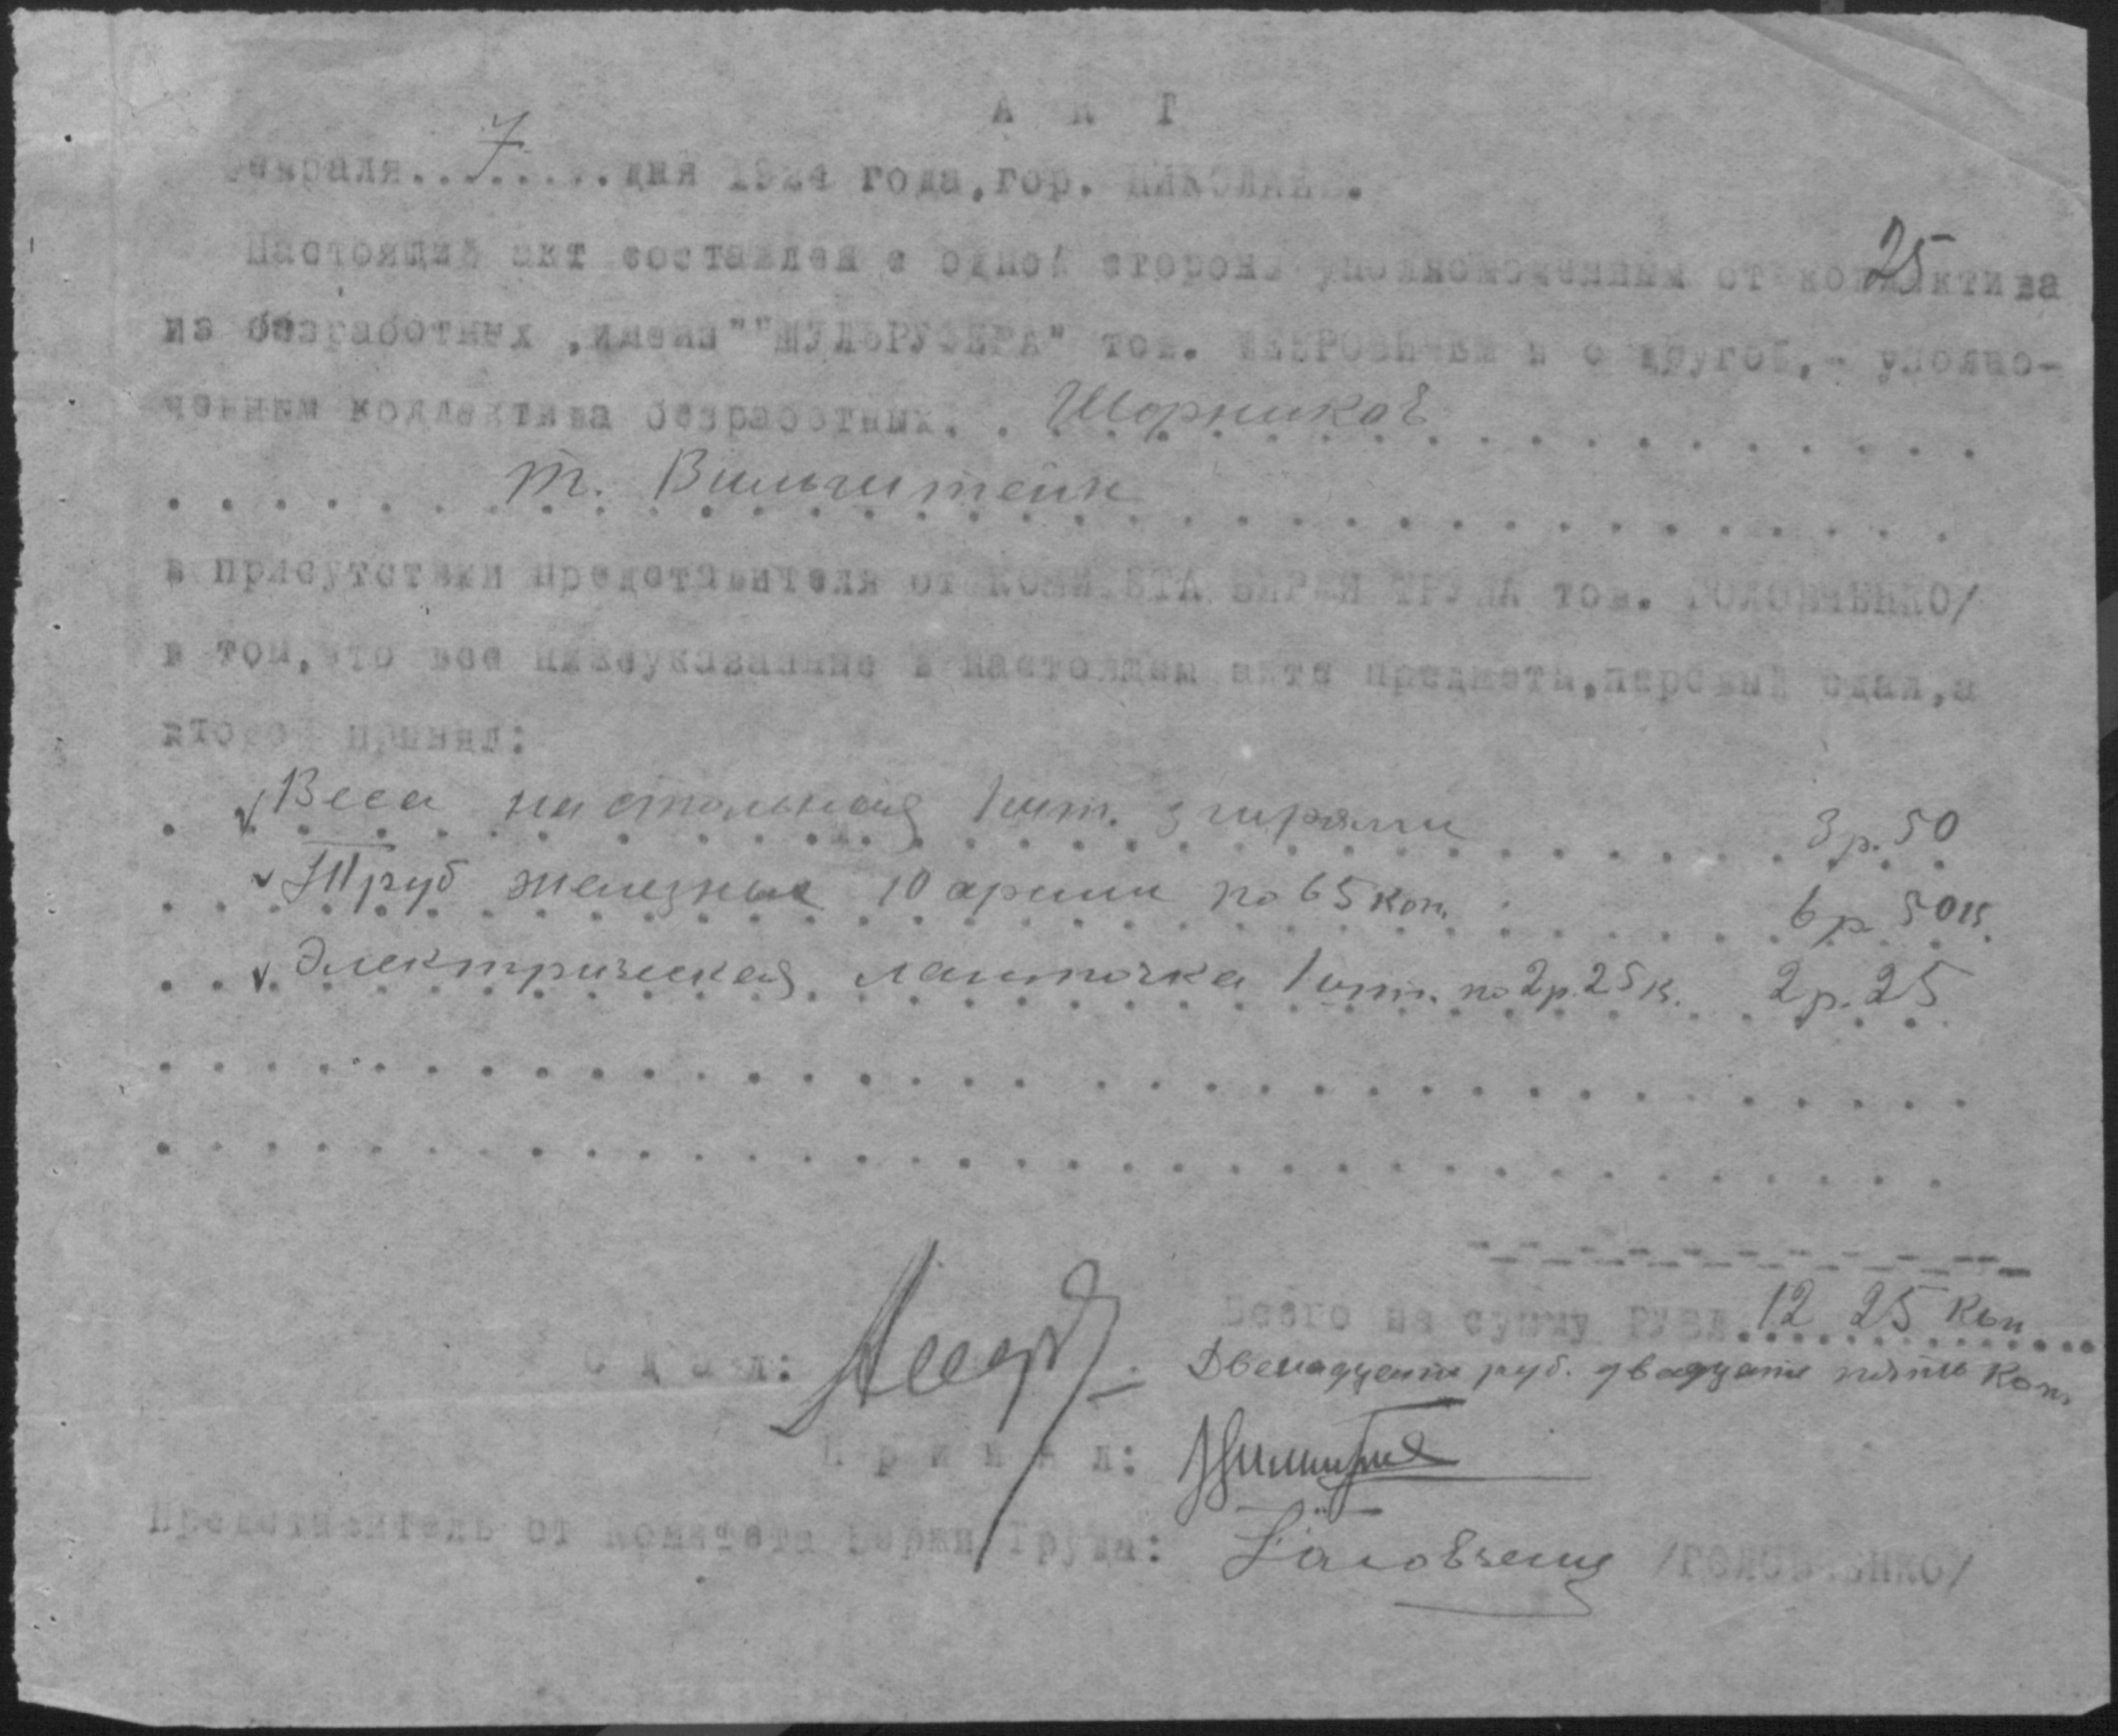 А К Т
февраля.. 7 ......дня 1924 года, гор. НИКОЛАЕВ.
25
Настоящий акт составлен с одной стороны уполномоченным от коллектива
из безработных ,имени""ШУЛЬРУФЕРА" тов. и с другой,- уполно-
ченным коллектива безработных. . Шорников
т. Вильчштейн
в присутствии представителя от КОМИТЕТА БИРЖИ ТРУДА тов. ГОЛОВЧЕНКО/
в том,что все нижеуказанные в настоящем акте предметы,первый сдал,а
второй принял:
Веса настольная 1 шт. з гирями 3 р. 50
Труб железные 10 аршин по 65 коп. 6 р. 50 к.
Электрическая лампочка 1 шт. по 2 р. 25 к. 2 р. 25
Всего на сумму РУБЛ. 12 25 коп
С д а л: Двенадцать руб. двадцать пять коп.
П р и н я л:
Представитель от Комитета Биржи Труда: Головченко /ГОЛОВЧЕНКО/